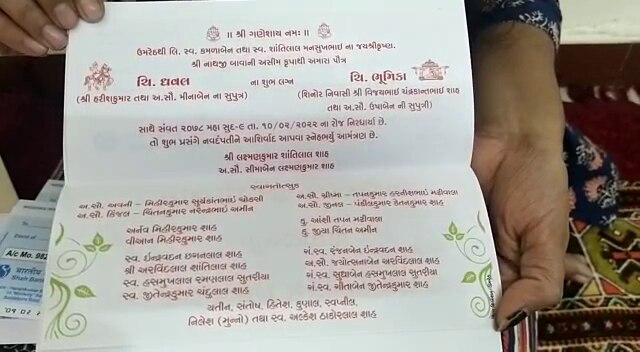 ॥ શ્રી ગણેશાય નમઃ ॥
ઉમરેઠથી લિ. સ્વ. કમળાબેન તથા સ્વ. શાંતિલાલ મનસુખભાઈ ના જયશ્રીકૃષ્ણ.
શ્રી નાથજી બાવાની અસીમ કૃપાથી અમારા પૌત્ર
ચિ. ધવલ ના શુભ લગ્ન ચિ. ભૂમિકા
(શ્રી હરીશકુમાર તથા અ.સૌ. મીનાબેન ના સુપુત્ર) (શિનોર નિવાસી શ્રી વિજયભાઈ ચંદ્રકાન્તભાઈ શાહ
તથા અ.સૌ. ઉષાબેન ની સુપુત્રી)
સાથે સંવત ૨૦૭૮ મહા સુદ-૯ તા. ૧૦/૦૨/૨૦૨૨ ના રોજ નિરધાર્યા છે.
તો શુભ પ્રસંગે નવદંપતીને આશિર્વાદ આપવા સ્નેહભર્યું આમંત્રણ છે.
શ્રી લક્ષ્મણકુમાર શાંતિલાલ શાહ
અ.સૌ. સીમાબેન લક્ષ્મણકુમાર શાહ
સ્વાગતોત્સુક
અ.સૌ. અવની - મિહીરકુમાર સુર્યકાંતભાઈ ચોકસી અ.સૌ. ગ્રીષ્મા - તપનકુમાર હરનીશભાઈ મટીવાલા
અ.સૌ. કિંજલ - ચિંતનકુમાર નરેન્દ્રભાઈ અમીન અ.સૌ. જીનલ - પંડીતકુમાર કેતનકુમાર શાહ
અર્નવ મિહીરકુમાર શાહ કુ. આંશી તપન મટીવાલા
વીઆન મિહીરકુમાર શાહ કુ. જીયા ચિંતન અમીન
સ્વ. ઇન્દ્રવદન છગનલાલ શાહ ગં.સ્વ. રંજનબેન ઇન્દ્રવદન શાહ
શ્રી અરવિંદલાલ શાંતિલાલ શાહ અ.સૌ. જ્યોત્સનાબેન અરવિંદલાલ શાહ
સ્વ. હસમુખલાલ રમણલાલ સુતરીયા ગં.સ્વ. સુધાબેન હસમુખલાલ સુતરીયા
સ્વ. જીતેન્દ્રકુમાર ચંદુલાલ શાહ ગં.સ્વ. ગીતાબેન જીતેન્દ્રકુમાર શાહ
યતીન, સંતોષ, હિતેશ, કુણાલ, સ્વપ્નીલ,
નિલેશ (મુન્નો) તથા સ્વ. અલ્કેશ ઠાકોરલાલ શાહ
A/c No. 982